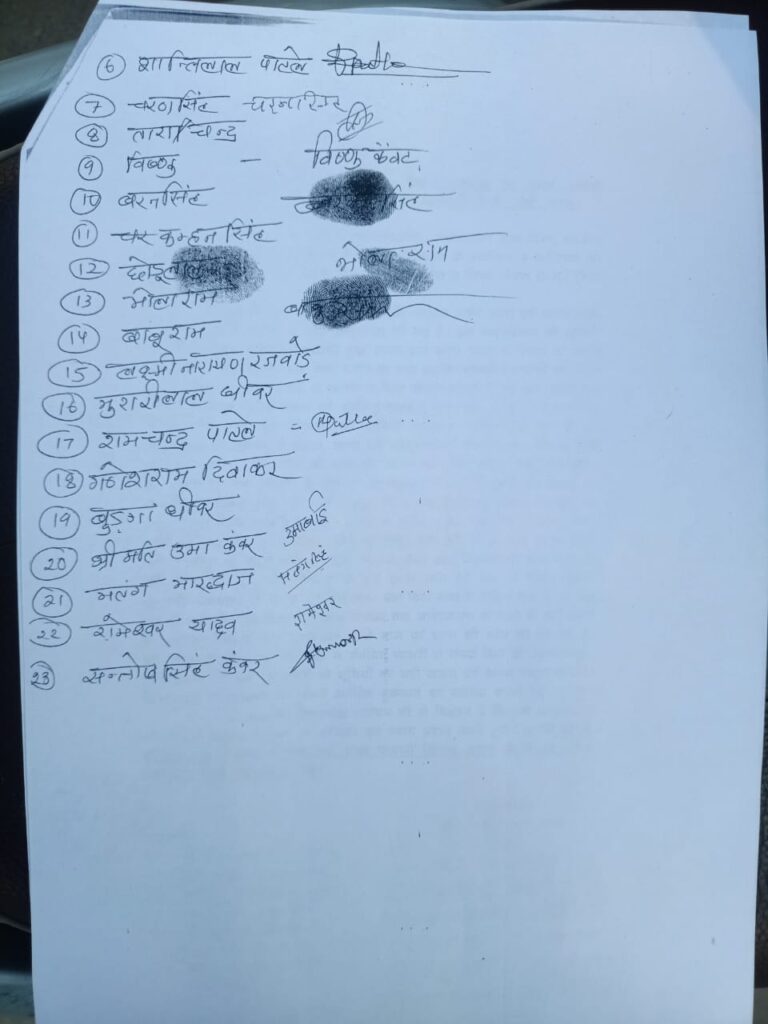 6 शान्तिलाल पाटले
7 चरणसिंह
8 ताराचन्द्र
9 विष्णु — विष्णु केंवट
10 बरनसिंह सिंह
11 सिंह
12 छोटूलाल भोला राम
13 भोलाराम
14 बाबूराम
15 लक्ष्मीनारायण रजवाड़े
16 मुरारीलाल धीवर
17 रामचन्द्र पाटले =
18 गणेशराम दिवाकर
19 बुड़गा धीवर
20 श्रीमति उमा कंवर उमाबाई
21 मलंग भारद्वाज
22 रामेश्वर यादव रामेश्वर
23 सन्तोष सिंह कंवर